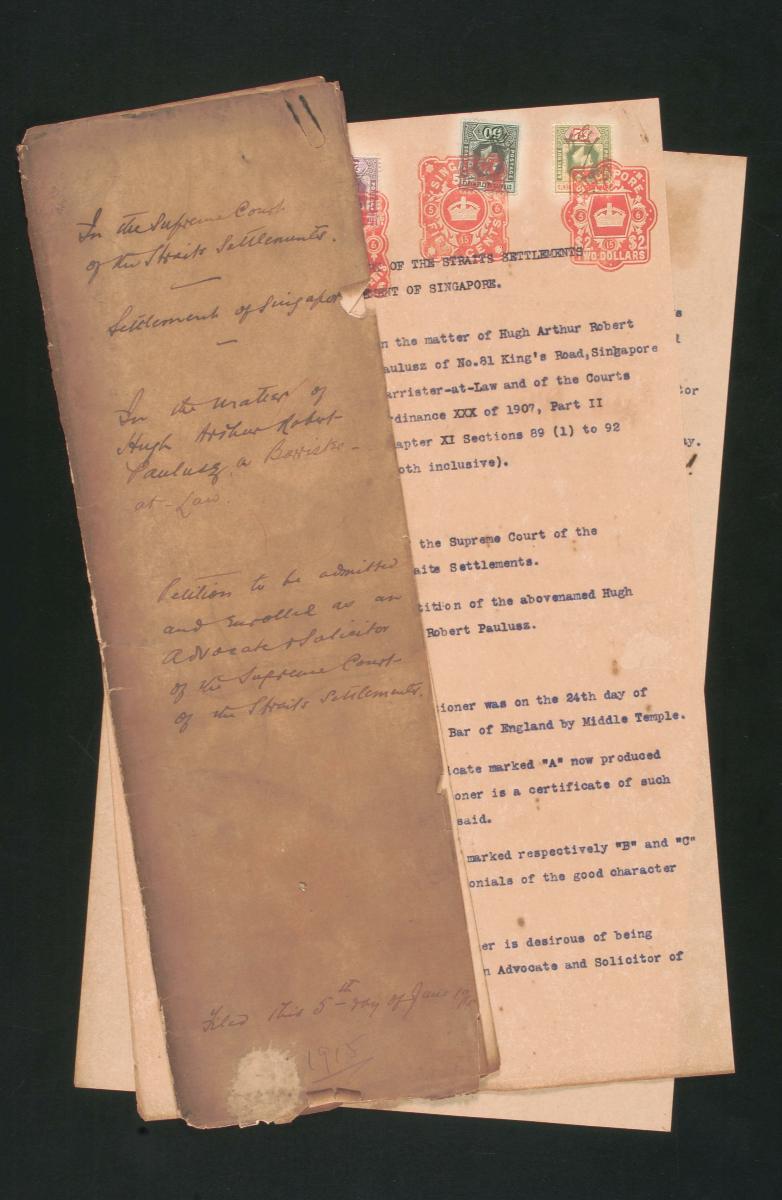 In the Supreme Court
of the Straits Settlements.
Settlement of Singapor
In the matter of
Hugh Arthur Robert
Paulusz a Barrister-
at-Law.
Petition to be admitted
and Enrolled as an
Advocate & Solicitor
of the Supreme Court
of the Straits Settlements.
Filed this 5th day of
1915
50
POSTAGE
SINGAPORE
FIFTY CENTS
5 6
15
SINGAPORE
5 6
$2 15 $2
TWO DOLLARS
OF THE STRAITS SETTLEMENTS
ENT OF SINGAPORE.
n the matter of Hugh Arthur Robert
aulusz of No.81 King's Road,Singapore
arrister-at-Law and of the Courts
rdinance XXX of 1907, Part II
hapter XI Sections 89 (1) to 92
oth inclusive).
the Supreme Court of the
aits Settlements.
tition of the abovenamed Hugh
Robert Paulusz.
ioner was on the 24th day of
Bar of England by Middle Temple.
icate marked "A" now produced
oner is a certificate of such
said.
marked respectively "B" and "C"
onials of the good character
er is desirous of being
n Advocate and Solicitor of
s
tor
ay.